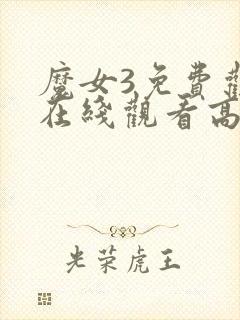 魔女3免費觀
在綫觀看高
光荣虎王